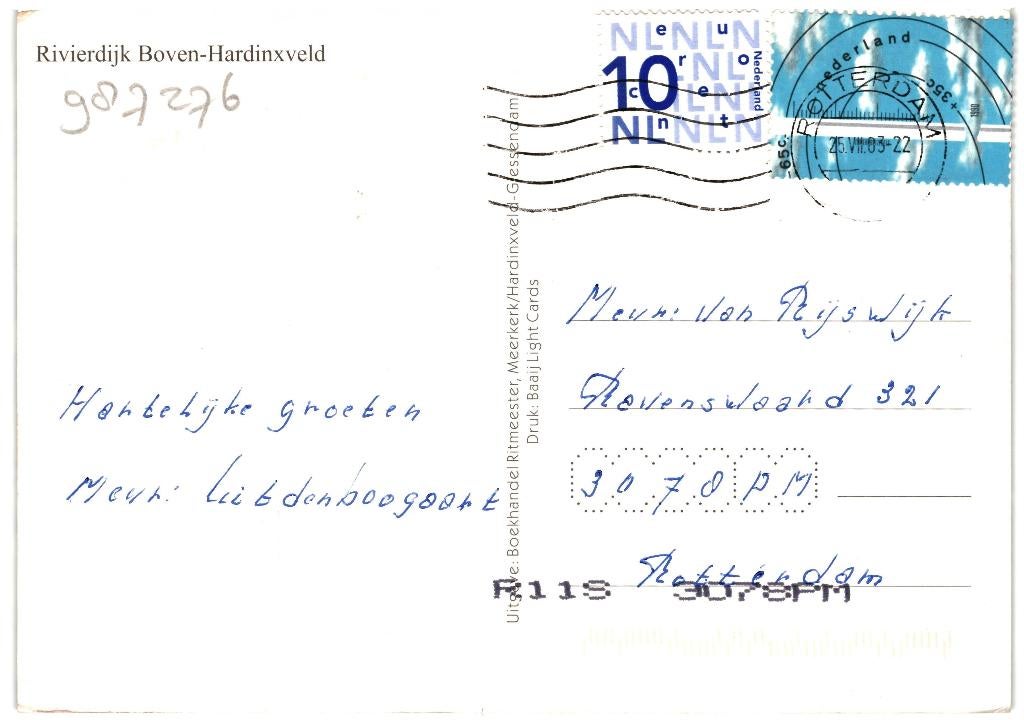 Rivierdijk Boven-Hardinxveld
987276
Hartelijke groeten
Mevr. Uitdenboogaart
Uitgave: Boekhandel Ritmeester, Meerkerk/Hardinxveld-Giessendam
Druk: Baaij Light Cards
NLNLNL
euro
10
cent
Nederland
NL
Nederland
+35c
1998
65c.
ROTTERDAM
25.VII.03-22
Mevr. van Rijswijk
Ravenswaard 321
3078 PM
Rotterdam
R11S 3078PM